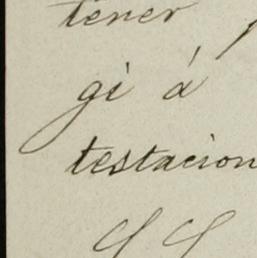 tener
gi á
testacion